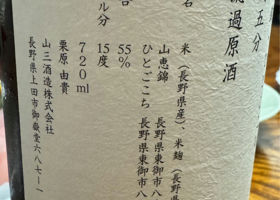 五分
過原酒
名
米(長野県産)、米麹(長野県
山恵錦 長野県東御市八
ひとごこち 長野県東御市八
合 55%
ル分 15度
720ml
栗原由貴
山三酒造株式会社
長野県上田市御嶽堂六八七ー一